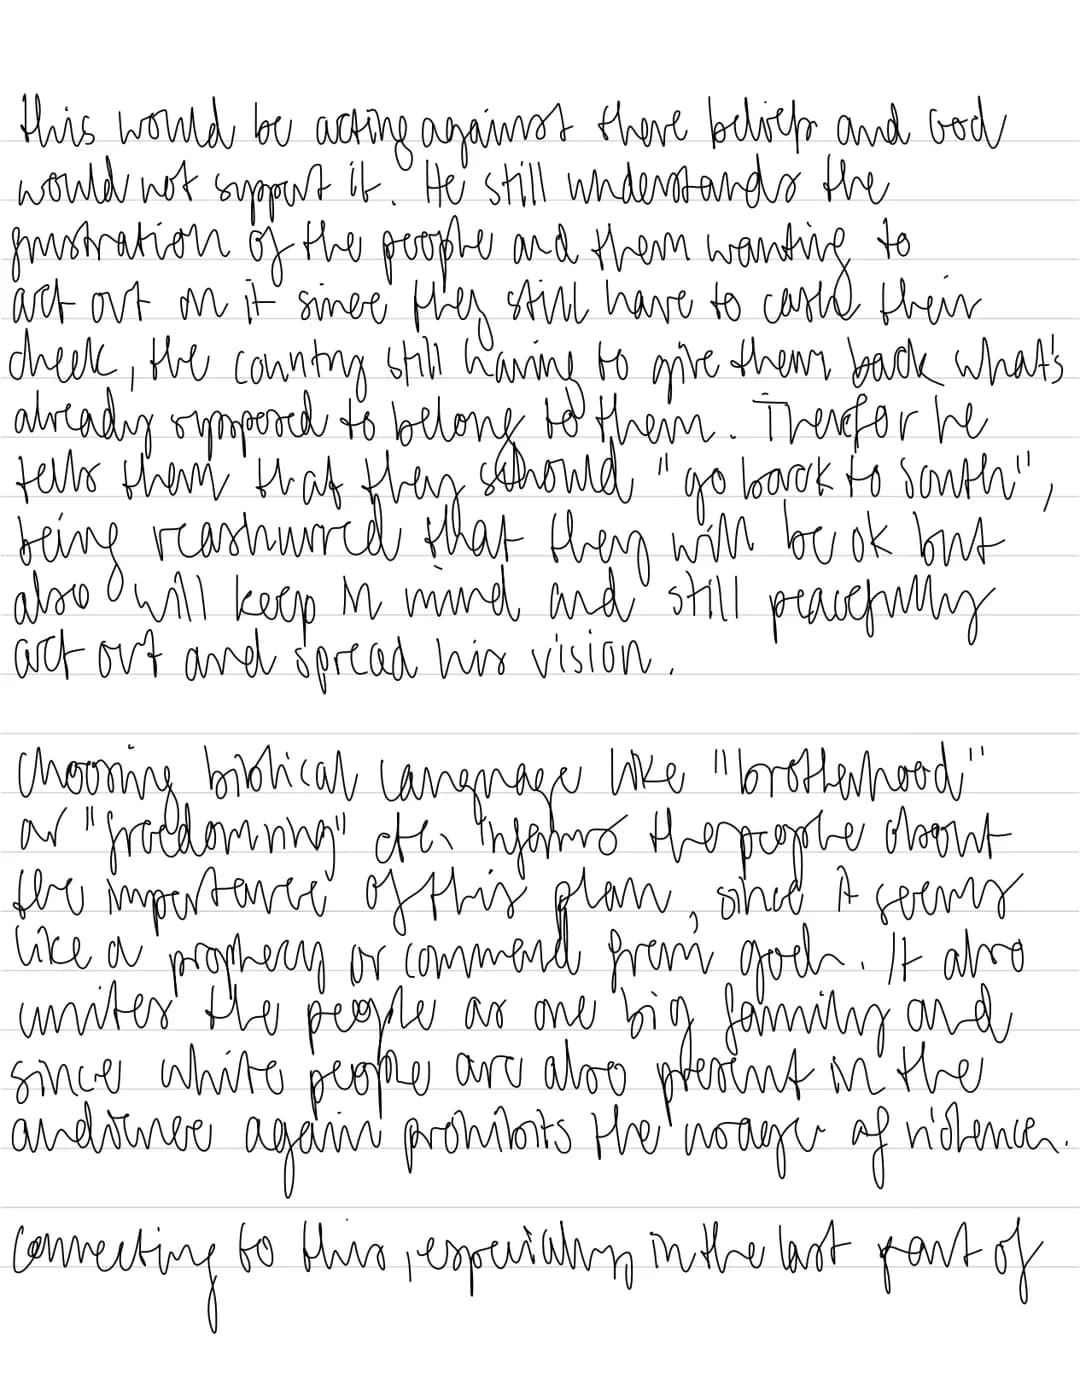 this would be acting against there beliefs and God
would not support it. He still understands the
frustration of the people and them wanting to
act out on it since they still have to cash their
check, the country still having to give them back what's
already supposed to belong to them. Therefor he
tells them that they should "go back to South",
being reashurred that they will be ok but
also will keep in mind and still peacefully
act out and spread his vision.
Choosing biblical language like "brotherhood"
or "freedom ring" etc. informs the people about
the importance of this plan, since it seems
like a prophecy or commend from god. It also
unites the people as one big family and
since white people are also present in the
audience again prohibits the usage of violence.
Connecting to this, especially in the last part of